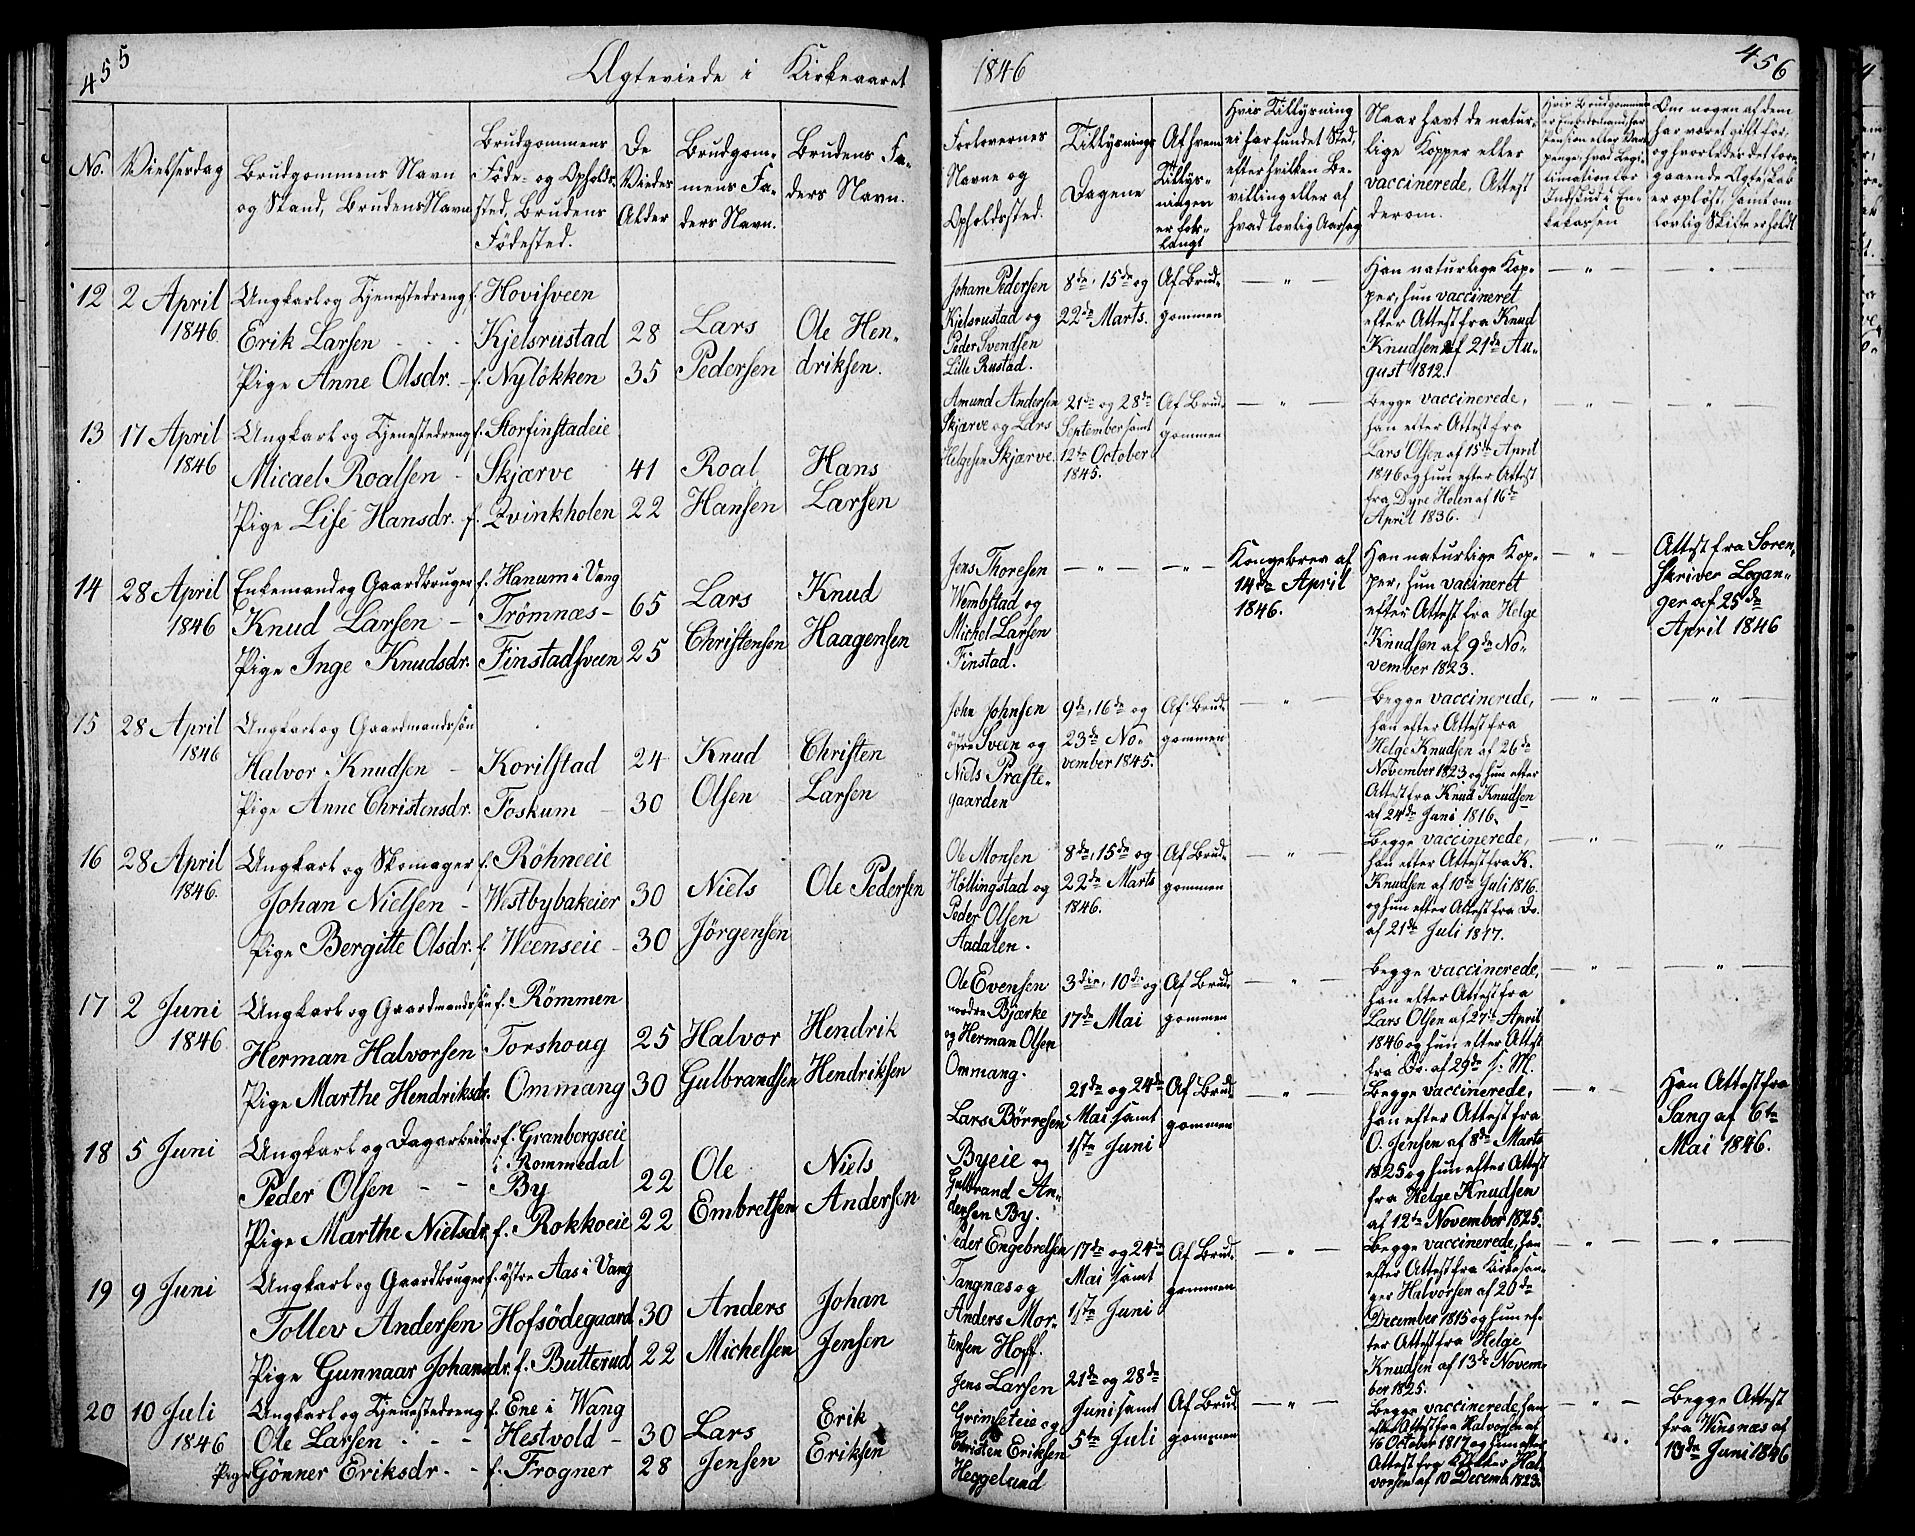 455
Ægteviede i Kirkeaaret
1846
456
No.
Vielsesdag
Brudgommens Navn
og Stand, Brudens Navn
Brudgommens
Føde- og Opholds-
sted, Brudens
Fødested.
De
Vieves
Alder
Brudgom-
mens Fa-
ders Navn.
Brudens Fa-
ders Navn.
Forlovernes
Navne og
Opholdssted.
Tillysnings
Dagene
Af hvem
Tillys-
ningen
er for-
langt
Hvis Tillysning
ei har fundet Sted,
efter hvilken Be-
villing eller af
hvad lovlig Aarsag
Naar havt de natur-
lige Kopper eller
vaccinerede, Attest
derom.
Om nogen af dem
har været gift før,
og hvorledes det fore-
gaaende Ægteskab
er opløst, samt om
lovlig Skifte er holdt
12 2 April
1846.
Ungkarl og Tjenestedreng
Erik Larsen
Pige Anne Olsdr.
f. Hovisveen
Kjelsrustad
f. Nyløkken
28
35
Lars
Pedersen
Ole Hen-
driksen.
Johan Pedersen
Kjelsrustad og
Peder Svendsen
Lille Rustad.
8de, 15de og
22de Marts.
Af Brud-
gommen
Han naturlige Kop-
per, hun vaccineret
efter Attest fra Knud
Knudsen af 21de Au-
gust 1812.
13 17 April
1846
Ungkarl og Tjenestedreng
Micael Roalsen
Pige Lise Hansdr.
f. Storfinstadeie
Skjærve
f. Qvinkholen
41
22
Roal
Hansen
Hans
Larsen
Amund Andersen
Skjærve og Lars
Helgesen Skjærve.
21de og 28de
September samt
12te October
1845.
Af Brud-
gommen
Begge vaccinerede,
han efter Attest fra
Lars Olsen af 15de April
1846 og hun efter Attest
fra Dyre Holen af 16de
April 1836.
14 28 April
1846
Enkemand og Gaardbruger
Knud Larsen
Pige Inge Knudsdr.
f. Hanum i Vang
Trømnæs
Finstadsveen
65
25
Lars
Christensen
Knud
Haagensen
Jens Thoresen
Wembstad og
Michel Larsen
Finstad.
Kongebrev af
14de April
1846.
Han naturlige Kop-
per, hun vacineret
efter Attest fra Helge
Knudsen af 9de No-
vember 1823.
Attest fra Soren-
skriver Logan-
ger af 25de
April 1846
15 28 April
1846
Ungkarl og Gaardmandssøn
Halvor Knudsen
Pige Anne Christensdr.
Korilstad
Foskum
24
30
Knud
Olsen
Christen
Larsen
John Johnsen
østre Sveen og
Niels Præste-
gaarden
9de, 16de og
23de No-
vember 1845.
Af Brud-
gommen
Begge vaccinerede,
han efter Attest fra
Helge Knudsen af 26de
November 1823 og hun efter
Attest fra Knud Knudsen
af 24de Juni 1816.
16 28 April
1846.
Ungkarl og Skomager
Johan Nielsen
Pige Bergitte Olsdr.
f. Røhneeie
Westbybakeier
f. Weenseie
30
30
Niels
Jörgensen
Ole Pedersen
Ole Monsen
Høllingstad og
Peder Olsen
Aadalen.
8de, 15de og
22de Marts
1846.
Af Brud-
gommen
Begge vaccinerede,
han efter Attest fra K.
Knudsen af 10de Juli 1816.
og hun efter Attest fra Do.
af 21de Juli 1817.
17 2 Juni
1846.
Ungkarl og Gaardmandssøn
Herman Halvorsen
Pige Marthe Hendriksdr.
f. Rømmen
Torshoug
Ommang
25
30
Halvor
Gulbrandsen
Hendrik
Hendriksen
Ole Evensen
nordre Bjærke
og Herman Olsen
Ommang.
3die, 10de og
17de Mai
Af Brud-
gommen
Begge vaccinerede,
han efter Attest fra
Lars Olsen af 27de April
1846 og hun efter Attest
fra Do. af 29de s. M.
18 5 Juni
Ungkarl og Dagarbeider
Peder Olsen
Pige Marthe Nielsdr.
f. Granbergseie
i Rommedal
By
f. Rokkoeie
22
22
Ole
Embretsen
Niels
Andersen
Lars Børresen
Byeie og
Gulbrand An-
dersen By.
21de og 24de
Mai samt
1ste Juni
Af Brud-
gommen
Begge vaccinerede,
han efter Attest fra
O. Jensen af 8de Marts
1825 og hun efter Attest
fra Helge Knudsen
af 12te November 1825.
Han Attest fra
Sang af 6te
Mai 1846.
19 9 Juni
Ungkarl og Gaardbruger
Tollev Andersen
Pige Gunnaar Johansdr.
f. østre Aas i Vang
Hofsødegaard
f. Butterud
30
22
Anders
Michelsen
Johan
Jensen
Peder Engebretsen
Tangnæs og
Anders Mor-
tensen Hoff.
17de og 24de
Mai samt
1ste Juni
Af Brud-
gommen
Begge vaccinerede, han
efter Attest fra Kirkesan-
ger Halvorsen af 20de
December 1815 og hun ef-
ter Attest fra Helge
Knudsen af 13de Novem-
ber 1825.
20 10 Juli
1846
Ungkarl og Tjenestedreng
Ole Larsen
Pige Gönner Eriksdr.
f. Ene i Wang
Hestvold
f. Frogner
30
28
Lars
Jensen
Erik
Eriksen
Jens Larsen
Grimseteie og
Christen Eriksen
Heggelund
21de og 28de
Juni samt
5te Juli
Af Brud-
gommen
Begge vaccinerede, han
efter Attest fra Halvorsen af
16 October 1817 og hun efter
Attest fra Klokker Hal-
vorsen af 10 Decemb. 1823.
Begge Attest
fra Winsnæs af
13de Juni 1846